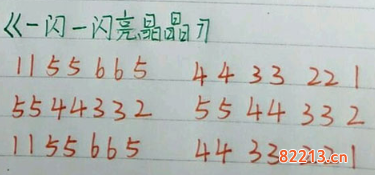 《一闪一闪亮晶晶》
1155665 4433221
5544332 5544332
1155665 4433 1
82213.cn